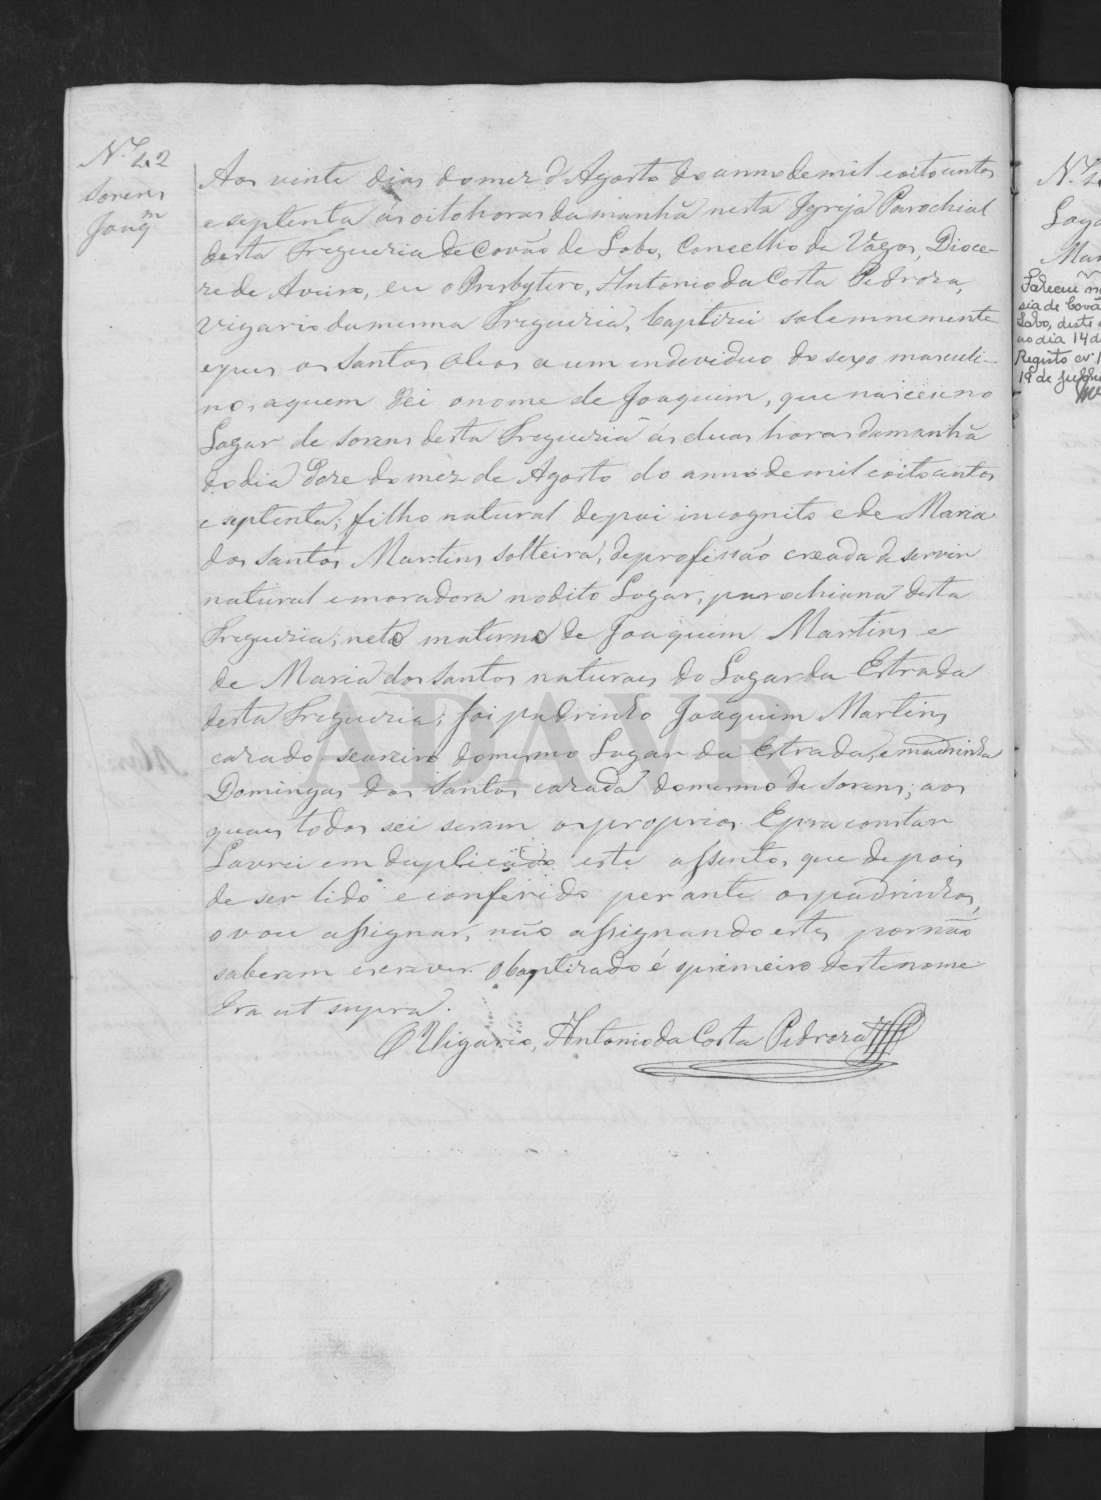 Nº 42
Sorens
Joaqm
Aos vinte dias do mez d'Agosto do anno de mil e oito centos
e septenta ás oito horas da manhã nesta Igreja Parochial
desta Freguezia de Covão de Lobo, Concelho de Vagos, Dioce-
ze de Aveiro, eu o Presbytero, Antonio da Costa Pedroza,
Vigario da mesma Freguezia, baptizei solemnemente
e puz os Santos Oleos a um endeviduo do sexo masculi-
no, a quem dei o nome de Joaquim, que nasceu no
Lugar de Sorens desta Freguezia ás duas horas da manhã
do dia doze do mez de Agosto do anno de mil e oito centos
e septenta; filho natural de pai incognito e de Maria
dos Santos Martins solteira, de profissão creada de servir
natural e moradora no dito Lugar, parochiana desta
Freguezia; neto materno de Joaquim Martins e
de Maria dos Santos naturaes do Lugar da Estrada
desta Freguezia; foi padrinho Joaquim Martins
cazado seareiro do mesmo Lugar da Estrada, e madrinha
Domingas dos Santos cazada do mesmo de Sorens; aos
quaes todos sei serem os proprios E pra constar
Lavrei em duplicado este assento, que depois
de ser lido e conferido perante os padrinhos,
o vou assignar, não assignando estes por não
saberem escrever. O baptizado é o primeiro deste nome
Era ut supra.
O Vigario, Antonio da Costa Pedroza
Nº
Faleceu
sia de Covã
Lobo, deste
no dia 14 d
Registo nº 1
19 de
ADAVR